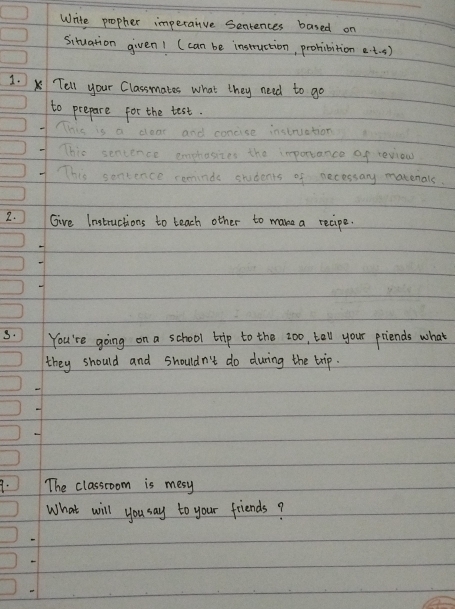 Write propher imperative sentences based on
Situation given! (can be instruction, prohibition e.t.s)
1. x Tell your Classmates what they need to go
to prepare for the test.
- This is a clear and concise instruction
- This sentence emphasizes the importance of review
- This sentence reminds students of necessary materials.
2. Give Instructions to teach other to make a recipe.
-
-
-
3. You're going on a school trip to the zoo, tell your friends what
they should and shouldn't do during the trip.
-
-
-
The classroom is mesy
What will you say to your friends?
-
-
-